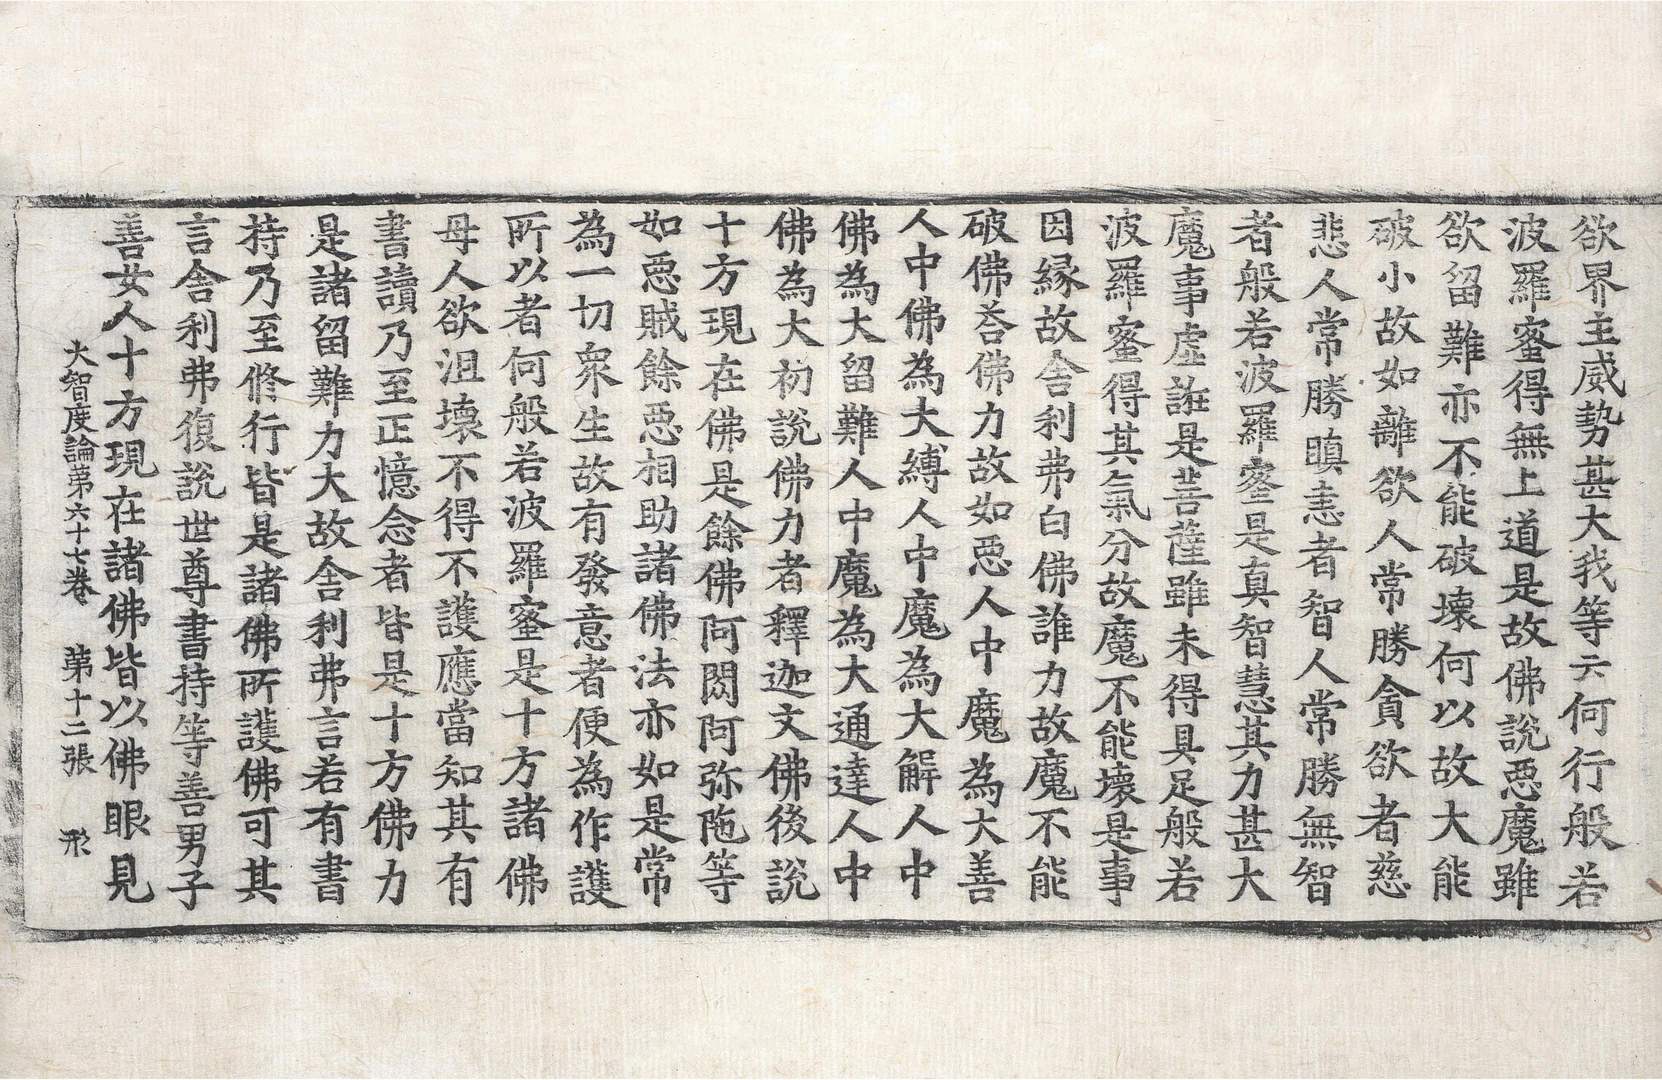 欲界主威勢甚大我等云何行般若
波羅蜜得無上道是故佛說惡魔雖
欲留難亦不能破壞何以故大能
破小故如離欲人常勝貪欲者慈
悲人常勝瞋恚者智人常勝無智
者般若波羅蜜是真智慧其力甚大
魔事虛誑是菩薩雖未得具足般若
波羅蜜得其氣分故魔不能壞是事
因緣故舍利弗白佛誰力故魔不能
破佛荅佛力故如惡人中魔為大善
人中佛為大縛人中魔為大解人中
佛為大留難人中魔為大通達人中
佛為大初說佛力者釋迦文佛後說
十方現在佛是餘佛阿閦阿弥陁等
如惡賊餘惡相助諸佛法亦如是常
為一切衆生故有發意者便為作護
所以者何般若波羅蜜是十方諸佛
母人欲沮壞不得不護應當知其有
書讀乃至正憶念者皆是十方佛力
是諸留難力大故舍利弗言若有書
持乃至修行皆是諸佛所護佛可其
言舍利弗復說世尊書持等善男子
善女人十方現在諸佛皆以佛眼見
大智度論第六十七卷 第十二張 形